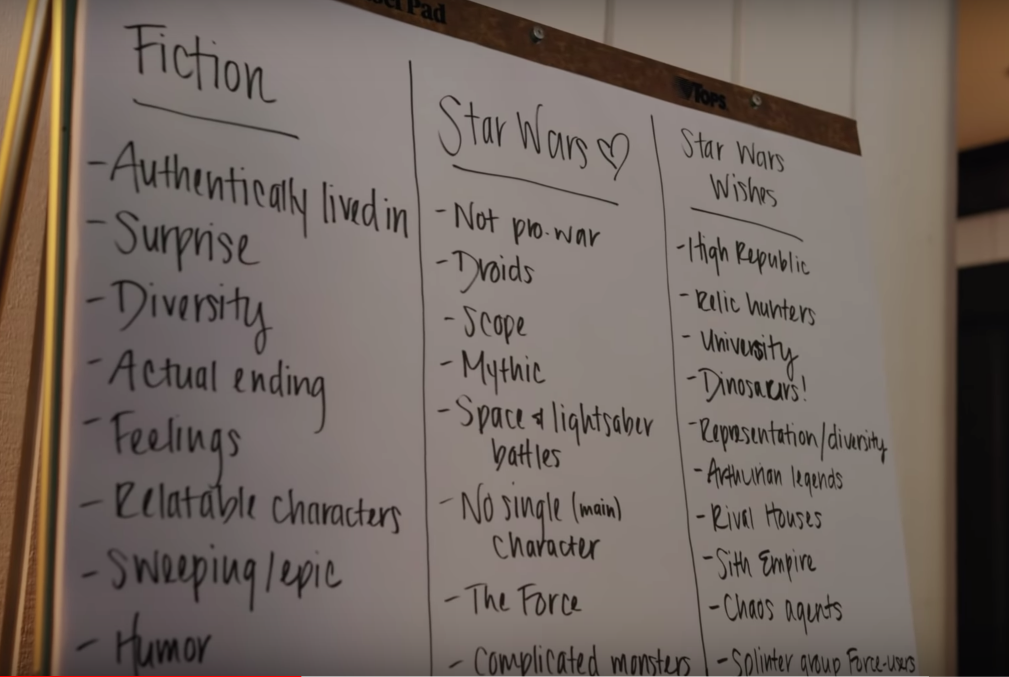 Pad
TOPS
Fiction
- Authentically lived in
- Surprise
- Diversity
- Actual ending
- Feelings
- Relatable characters
- Sweeping/epic
- Humor
Star Wars ♡
- Not pro-war
- Droids
- Scope
- Mythic
- Space & lightsaber
battles
- No single (main)
character
- The Force
- Complicated monsters
Star Wars
Wishes
- High Republic
- Relic hunters
- University
- Dinosaurs!
- Representation/diversity
- Arthurian legends
- Rival Houses
- Sith Empire
- Chaos agents
- Splinter group Force-users